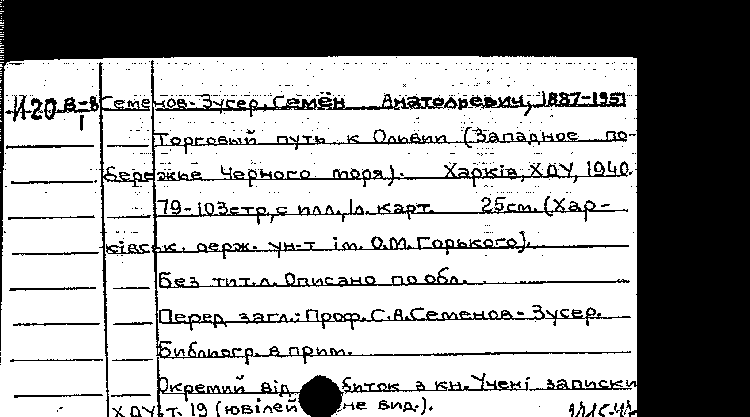 И20 В-8 Семенов-Зусер, Семён Анатольевич, 1887-1951
I
Торговый путь к Ольвии (Западное по-
бережье Черного моря). Харкiв, ХДУ, 1940.
79-103стр, с илл., 1л. карт. 25см. (Хар-
кiвськ. держ. ун-т iм. О.М. Горького).
Без тит.л. Описано по обл.
Перед загл.: Проф. С.А. Семенов-Зусер.
Библиогр. в прим.
Окремий вiд биток з кн. Ученi записки
ХДУ, т. 19 (ювiлей не вид.).